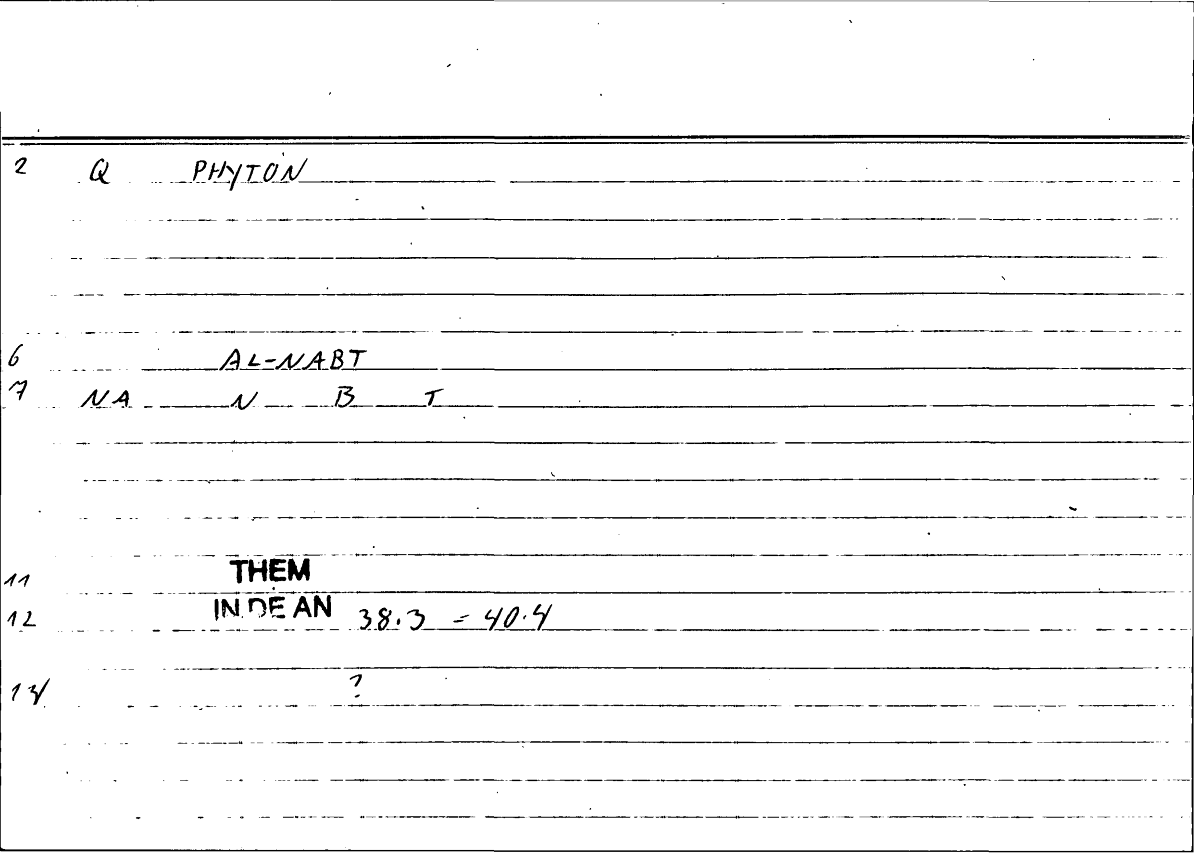 2 Q PHYTON
6 AL-NABT
7 NA N B T
11 THEM
12 IN DE AN 38.3 = 40.4
13/ ?